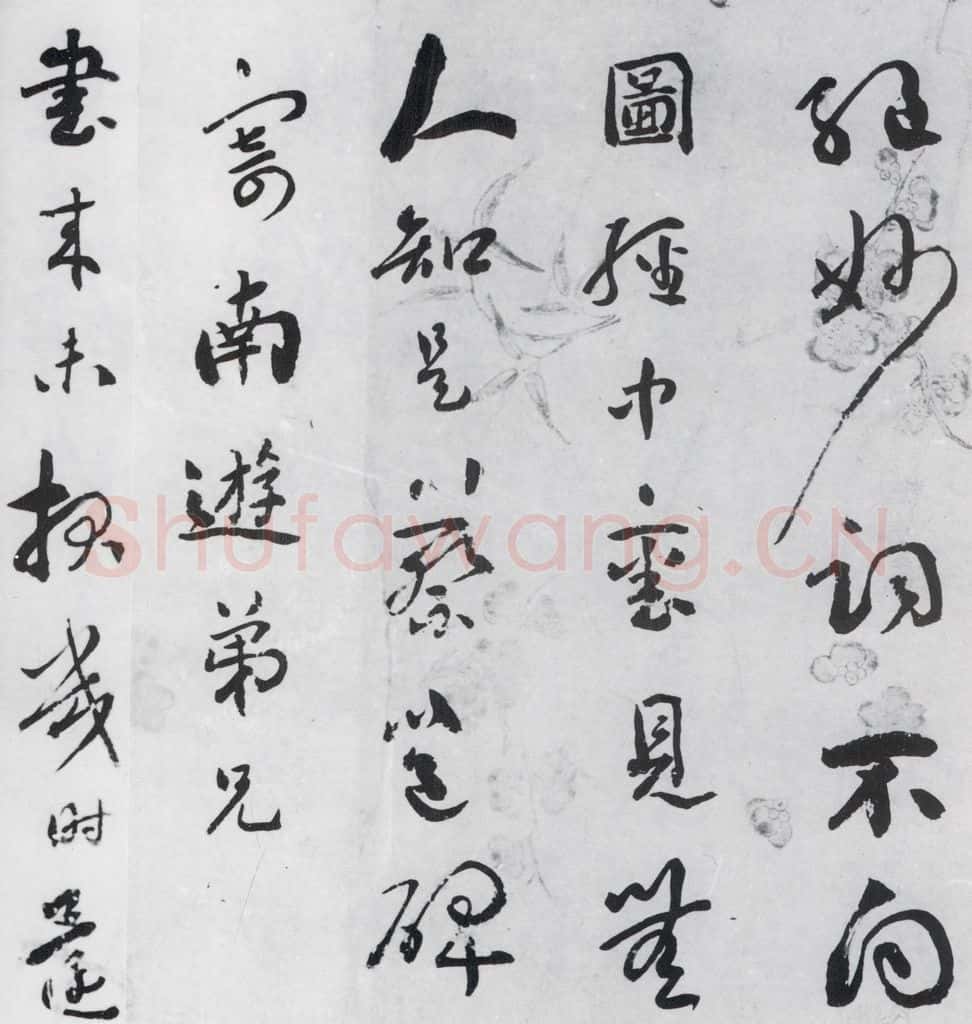 絕妙詞不向
圖經中舊見無
人知是蔡邕碑
寄南遊弟兄
書来未报幾时還
Shufawang.CN